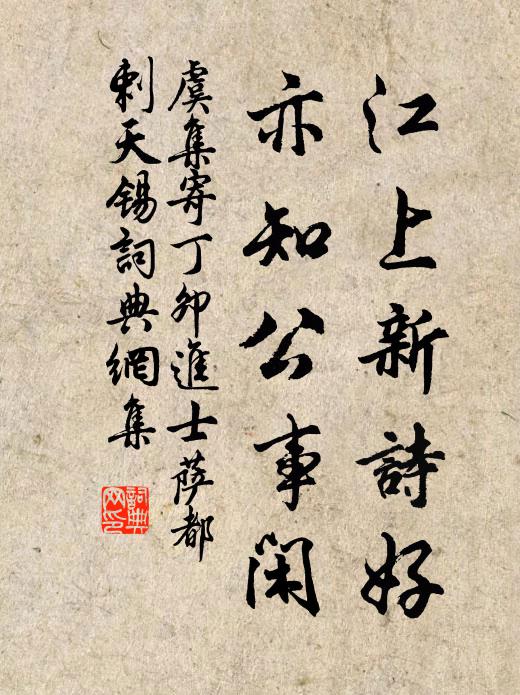 江上新詩好
亦知公事閑
虞集寄丁卯進士薩都
剌天錫詞典網集
詞典網印